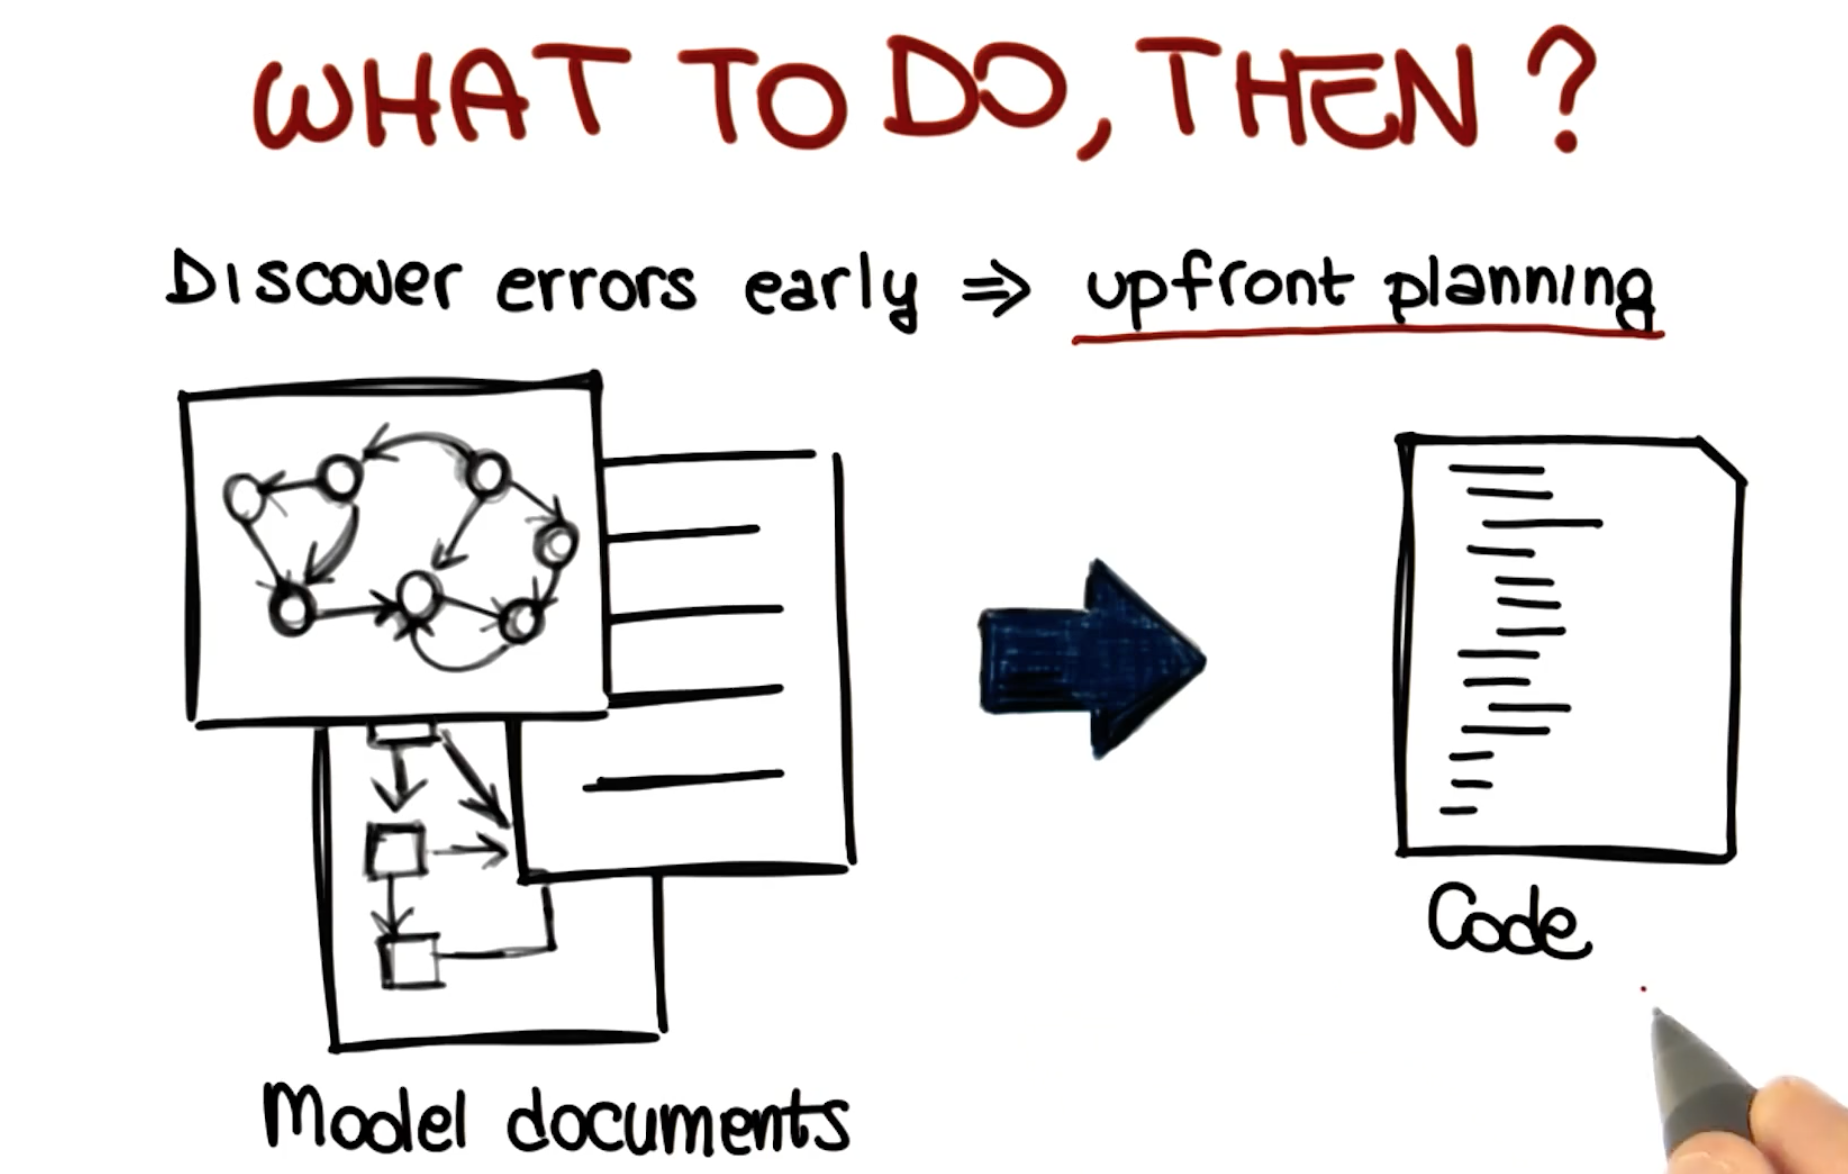 WHAT TO DO, THEN?
Discover errors early ⇒ upfront planning
Code
Model documents